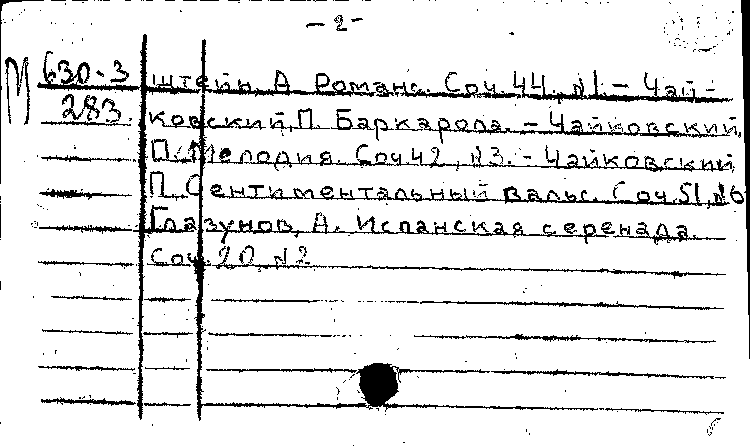 - 2 -
М 630-3 штейн, А Романс. Соч. 44, N1. – Чай-
283. ковский, П. Баркарола. – Чайковский,
П. Мелодия. Соч 42, N3. – Чайковский,
П. Сентиментальный вальс. Соч. 51, N6
Глазунов, А. Испанская серенада.
Соч. 20, N2